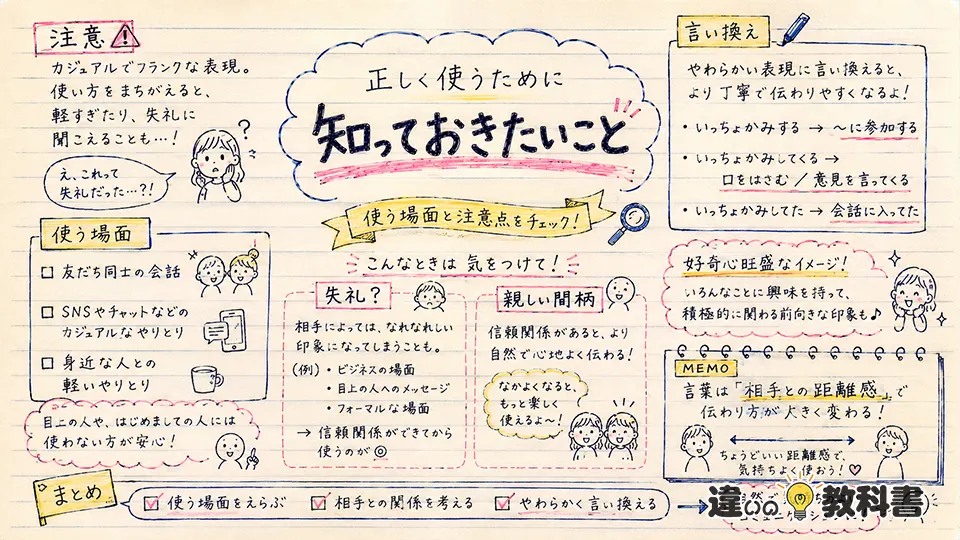 注意
カジュアルでフランクな表現。
使い方をまちがえると、
軽すぎたり、失礼に
聞こえることも…！
?
え、これって
失礼だった…?!
正しく使うために
知っておきたいこと
使う場面と注意点をチェック！
言い換え
やわらかい表現に言い換えると、
より丁寧で伝わりやすくなるよ！
・いっちょかみする → 〜に参加する
・いっちょかみしてくる →
口をはさむ／意見を言ってくる
・いっちょかみしてた → 会話に入ってた
使う場面
□ 友だち同士の会話
□ SNSやチャットなどの
カジュアルなやりとり
□ 身近な人との
軽いやりとり
目上の人や、はじめましての人には
使わない方が安心！
こんなときは 気をつけて！
失礼？
相手によっては、なれなれしい
印象になってしまうことも。
(例)・ビジネスの場面
・目上の人へのメッセージ
・フォーマルな場面
→ 信頼関係ができてから
使うのが◎
親しい間柄
信頼関係があると、より
自然で心地よく伝わる！
なかよくなると、
もっと楽しく
使えるよ〜！
好奇心旺盛なイメージ！
いろんなことに興味を持って、
積極的に関わる前向きな印象も♪
MEMO
言葉は「相手との距離感」で
伝わり方が大きく変わる！
ちょうどいい距離感で、
気持ちよく使おう！♡
まとめ
☑ 使う場面をえらぶ ☑ 相手との関係を考える ☑ やわらかく言い換える →
違いの教科書